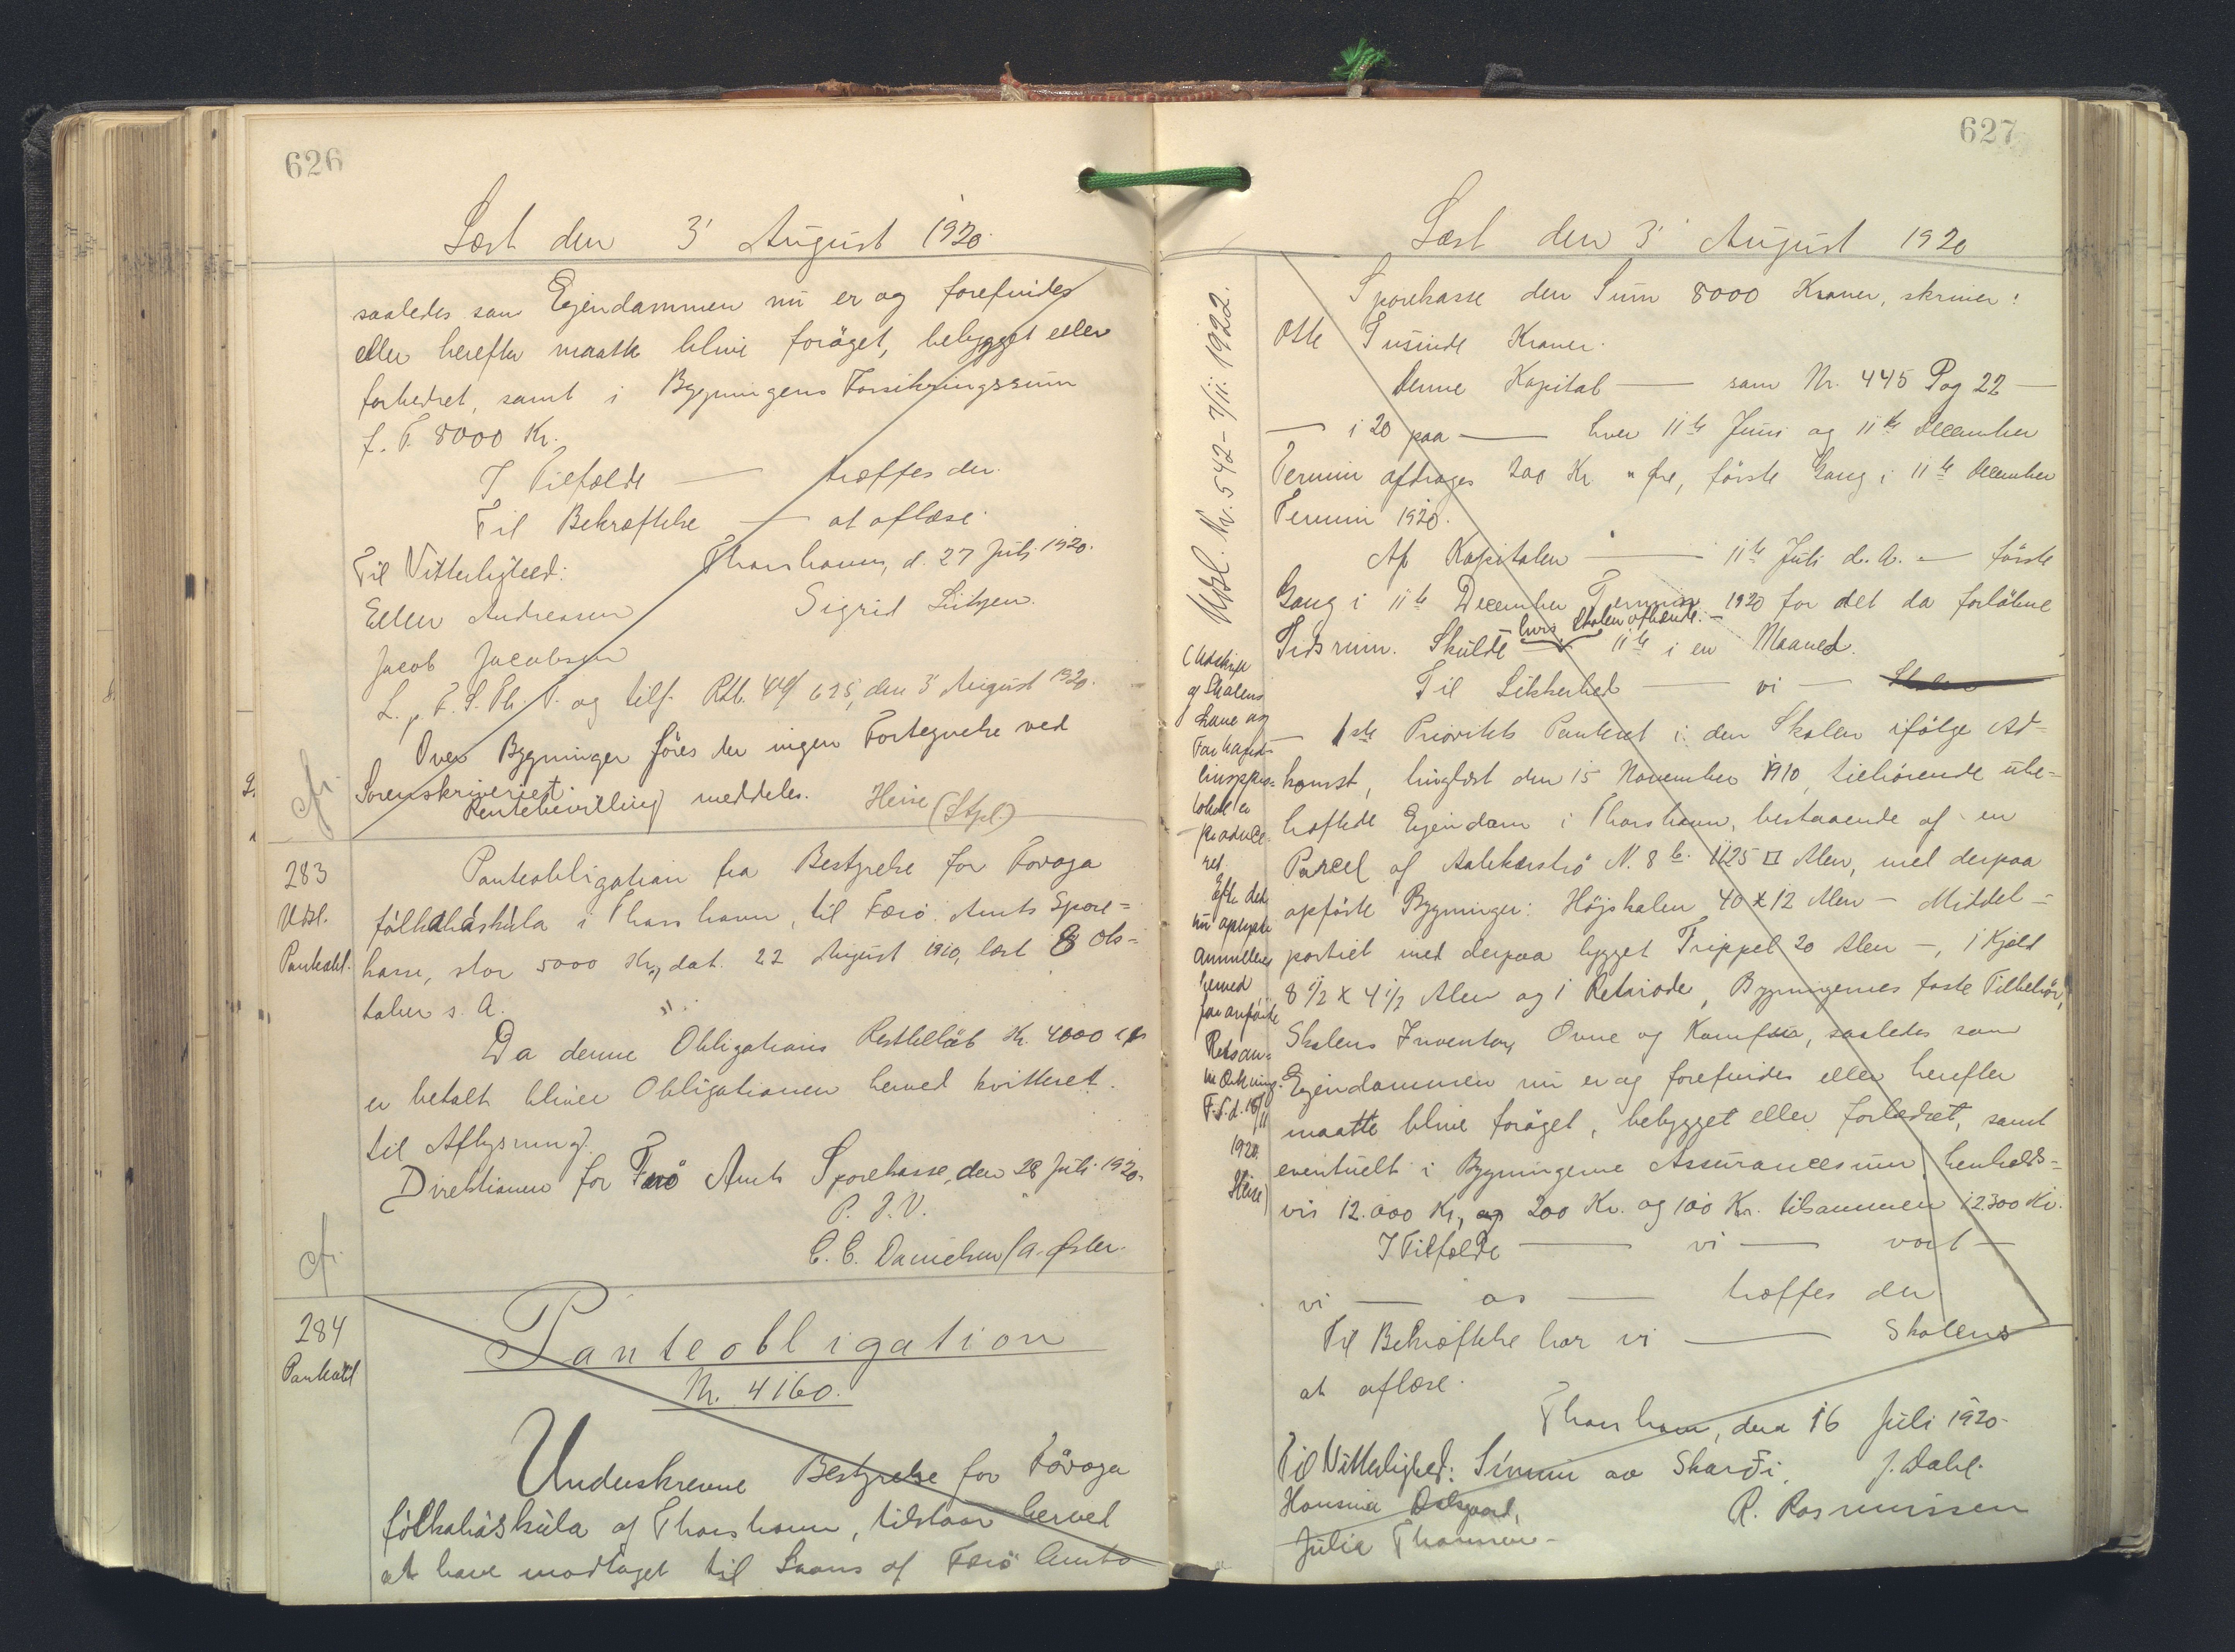 626
Læst den 3' August 1920.
saaledes som Ejendommen nu er og forefindes
eller herefter maatte blive forøget, bebygget eller
forbedret, samt i Bygningens Forsikringssum
f. T. 8000 Kr.
I Tilfælde — træffes der.
Til Bekræftelse — at aflæse.
Til Vitterlighed: Thorshavn, d. 27 Juli 1920.
Ellen Andreasen Sigrid Lützen.
Jacob Jacobsen
L. p. T. S. Th. T. og tilf. Rtb. 625, den 3' August 1920.
Over Bygninger føres der ingen Fortegnelse ved
Sorenskriveriet.
Rentebevilling meddeles. Heise (Stpl.)
cfr.
283
Udsl.
Panteobl.
Panteobligation fra Bestyrelse for Føroya
fólkaháskúla i Thorshavn, til Færø Amts Spare=
kasse, stor 5000 Kr., dat. 22 August 1910, læst 8 Ok=
tober s. A.
Da denne Obligations Restbeløb Kr. 4000
er betalt bliver Obligationen herved kvitteret
til Aflysning.
Direktionen for Færø Amts Sparekasse, den 28 Juli 1920.
P. D. V.
C. C. Danielsen / A. Øster.
cfr.
284
Panteobl
Panteobligation
Nr. 4160.
Underskrevne Bestyrelse for Føroya
fólkaháskúla af Thorshavn, tilstaar herved
at have modtaget til Laans af Færø Amts
627
Læst den 3' August 1920
Sparekasse den Sum 8000 Kroner, skriver:
Otte Tusinde Kroner.
Denne Kapital — som Nr. 445 Pag 22 —
— i 20 paa — hver 11te Juni og 11te December
Termin afdrages 200 Kr. " Øre, første Gang i 11te December
Termin 1920.
Af Kapitalen — 11te Juli d. A. — første
Gang i 11te December Termin 1920 for det da forløbne
Tidsrum. Skulde — hvis Skolen afhænde. — 11te i en Maaned.
Til Sikkerhed — vi —
— 1ste Prioritets Panteret i den Skolen ifølge Ad=
komst, tinglæst den 15 November 1910, tilhørende ube=
hæftede Ejendom i Thorshavn, bestaaende af en
Parcel af Aalekærstrø N. 8 b. 1125 □ Alen, med derpaa
opførte Bygninger: Højskolen 40 x 12 Alen — Middel=
partiet med derpaa bygget Trippel 20 Alen —, 1 Kjøld
8 1/2 x 4 1/2 Alen og 1 Retirade, Bygningernes faste Tilbehør,
Skolens Inventar, Ovne og Komfur, saaledes som
Ejendommen nu er og forefindes eller herefter
maatte blive forøget, bebygget eller forbedret, samt
eventuelt i Bygningerne Assurancesum, henholds=
vis 12.000 Kr., og 200 Kr. og 100 Kr. tilsammen 12300 Kr.
I Tilfælde — vi — vort —
vi — os — træffes der
Til Bekræftelse har vi — Skolens
at aflæse.
Thorshavn, den 16 Juli 1920.
Til Vitterlighed: Símun av Skarði, J. Dahl.
Hansina Dalsgaard, R. Rasmussen
Julia Thomsen —
Udsl. Nr. 542 - 7/11. 1922.
(Udskrift
af Skolens
Love og
Forhand=
lingsproto=
kol er
produce=
ret.
Efter det
nu oplyste
annulleres
herved
foranførte
Retsan=
mærkning.
F. S. d. 18/11
1920.
Heise)